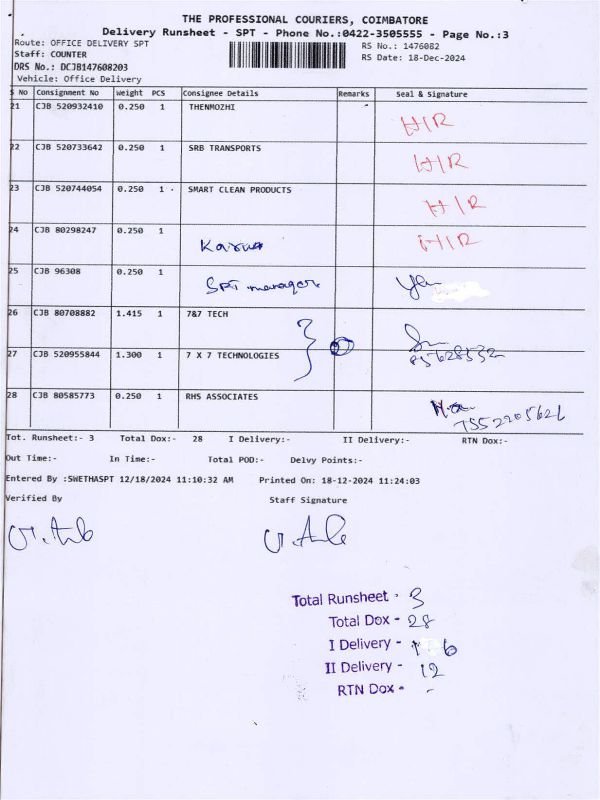 THE PROFESSIONAL COURIERS, COIMBATORE
Delivery Runsheet - SPT - Phone No.:0422-3505555 - Page No.:3
Route: OFFICE DELIVERY SPT RS No.: 1476082
Staff: COUNTER RS Date: 18-Dec-2024
DRS No.: DCJB147608203
Vehicle: Office Delivery
S No Consignment No Weight PCS Consignee Details Remarks Seal & Signature
21 CJB 520932410 0.250 1 THENMOZHI H/R
22 CJB 520733642 0.250 1 SRB TRANSPORTS H/R
23 CJB 520744054 0.250 1 SMART CLEAN PRODUCTS H/R
24 CJB 80298247 0.250 1 H/R
25 CJB 96308 0.250 1 SPT manager
26 CJB 80708882 1.415 1 7&7 TECH
27 CJB 520955844 1.300 1 7 X 7 TECHNOLOGIES
28 CJB 80585773 0.250 1 RHS ASSOCIATES
7552205626
Tot. Runsheet:- 3 Total Dox:- 28 I Delivery:- II Delivery:- RTN Dox:-
Out Time:- In Time:- Total POD:- Delvy Points:-
Entered By :SWETHASPT 12/18/2024 11:10:32 AM Printed On: 18-12-2024 11:24:03
Verified By Staff Signature
Total Runsheet - 3
Total Dox - 28
I Delivery - 6
II Delivery - 12
RTN Dox - -